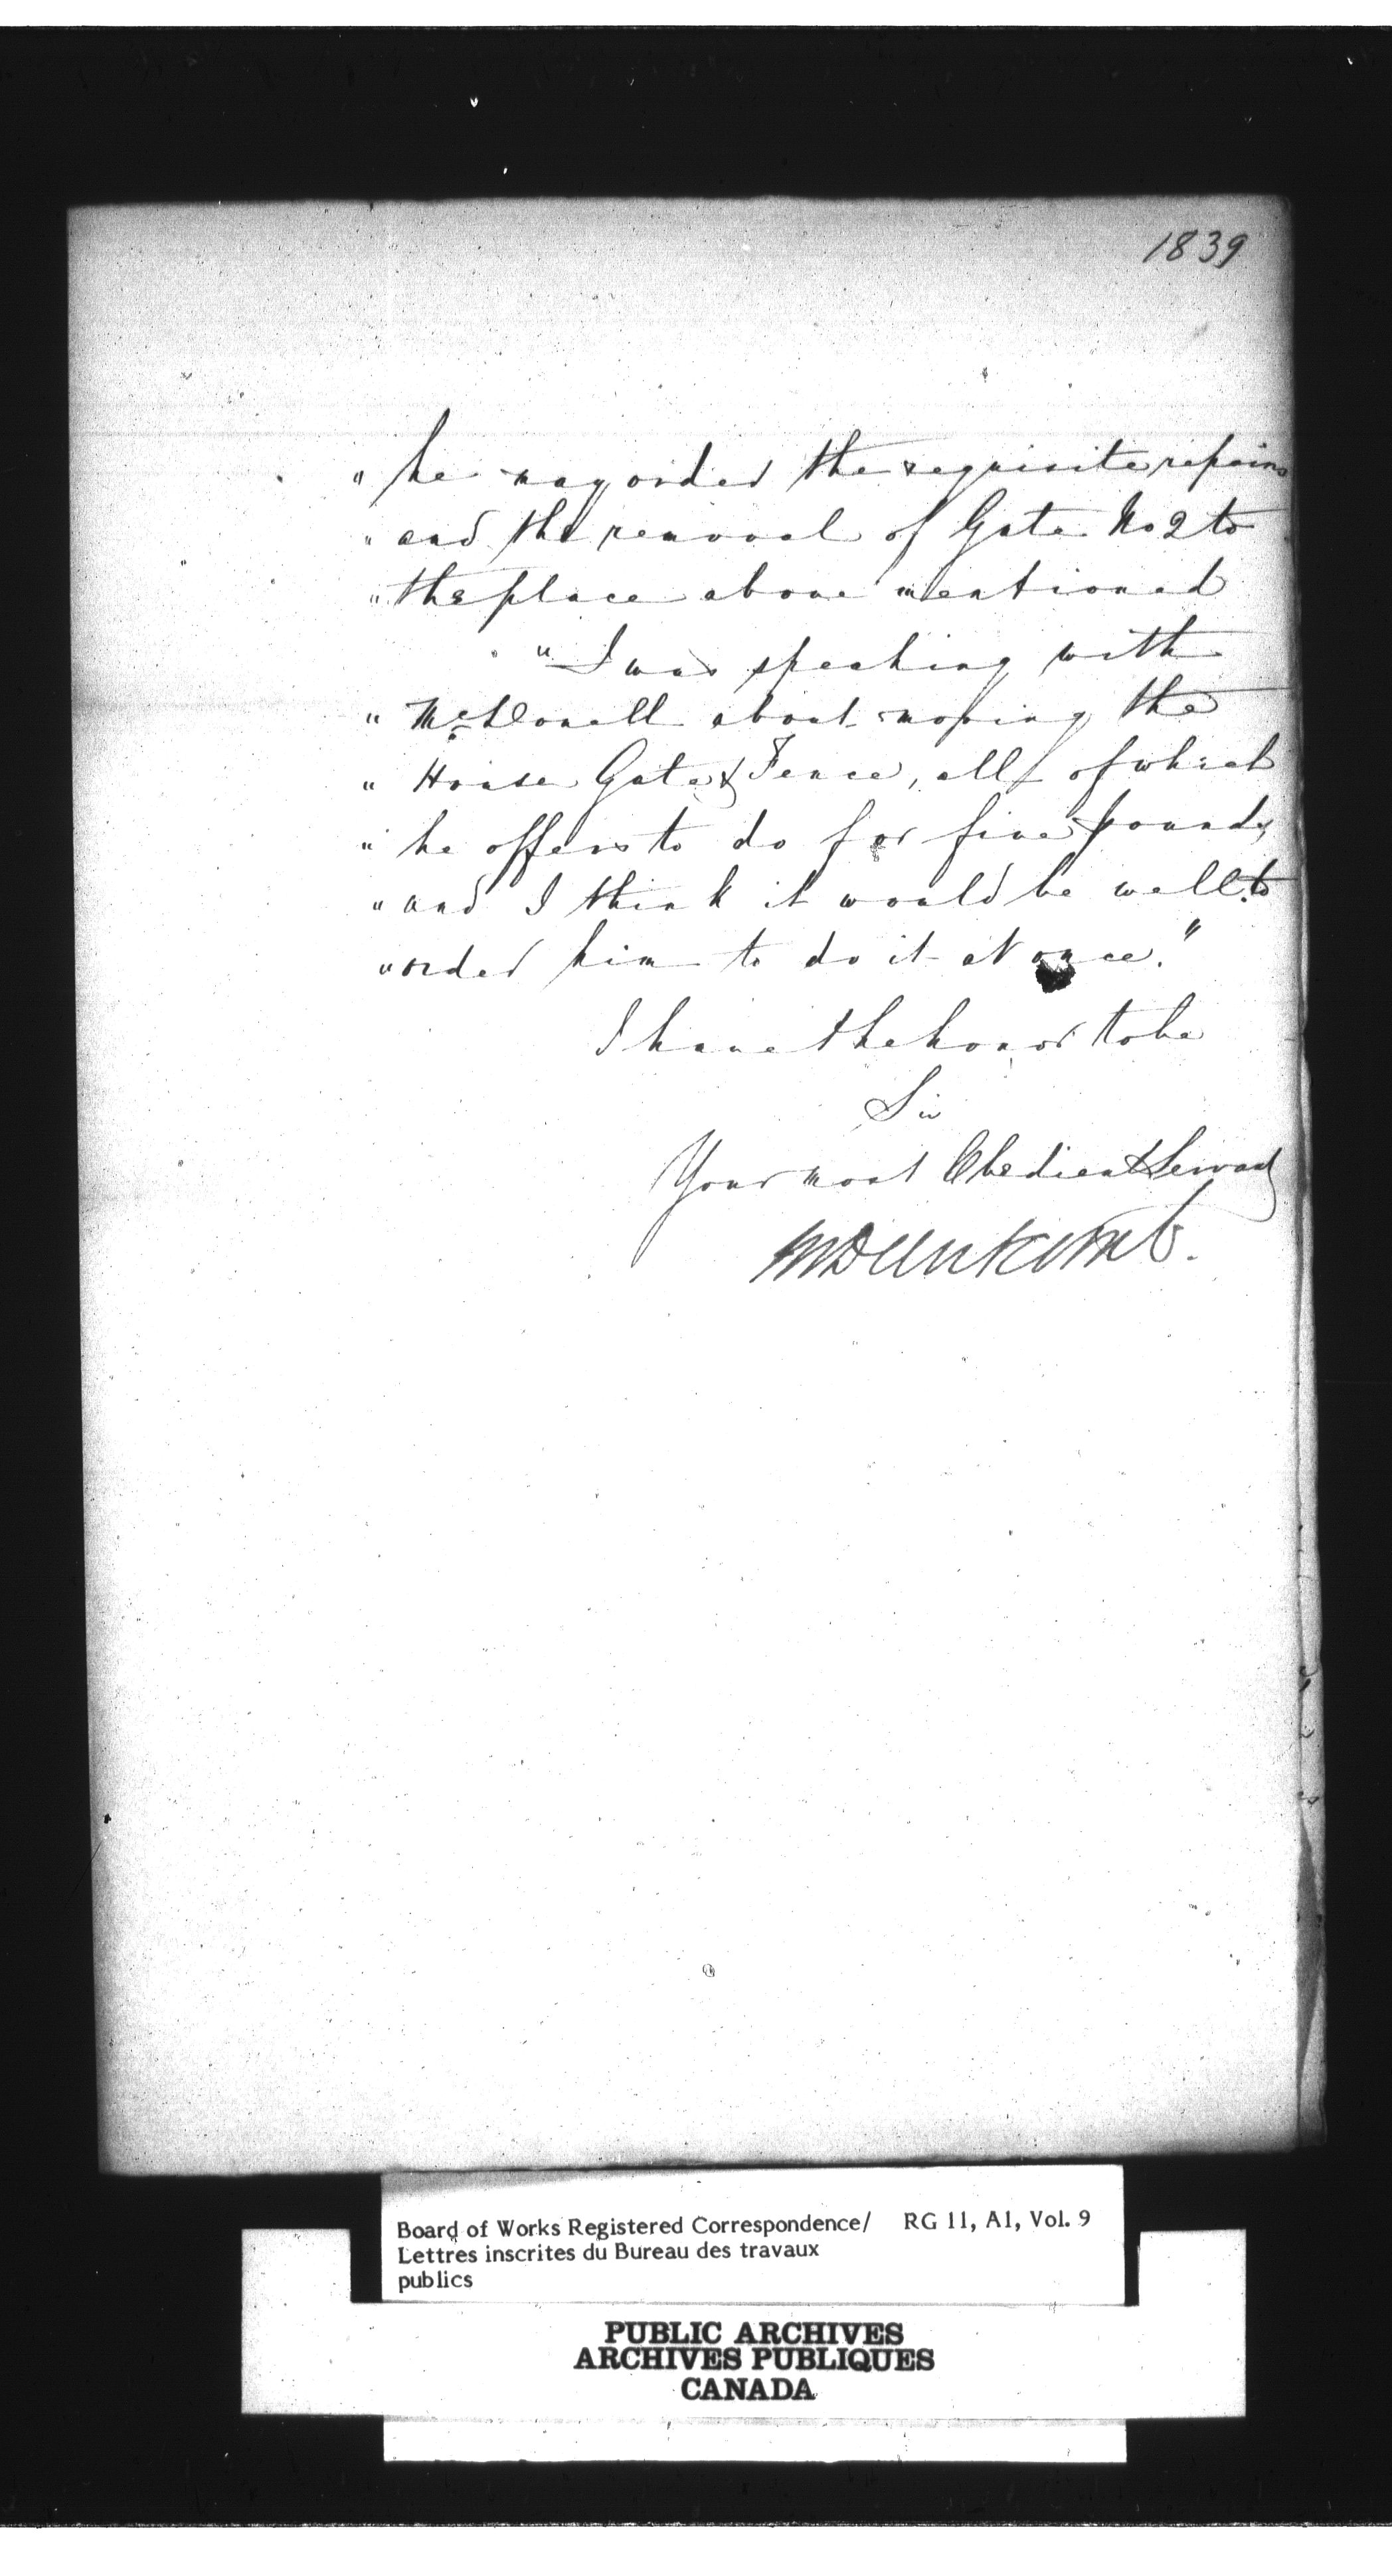 1839
" he may order the requisite repairs
" and the removal of Gate No 2 to
" the place above mentioned
" I was speaking with
" McDonell about moving the
" House Gate & Fence, all of which
" he offers to do for five pounds,
" and I think it would be well to
" order him to do it at once."
I have the honor to be
Sir
Your most Obedient Servant
Board of Works Registered Correspondence/ RG 11, A1, Vol. 9
Lettres inscrites du Bureau des travaux
publics
PUBLIC ARCHIVES
ARCHIVES PUBLIQUES
CANADA